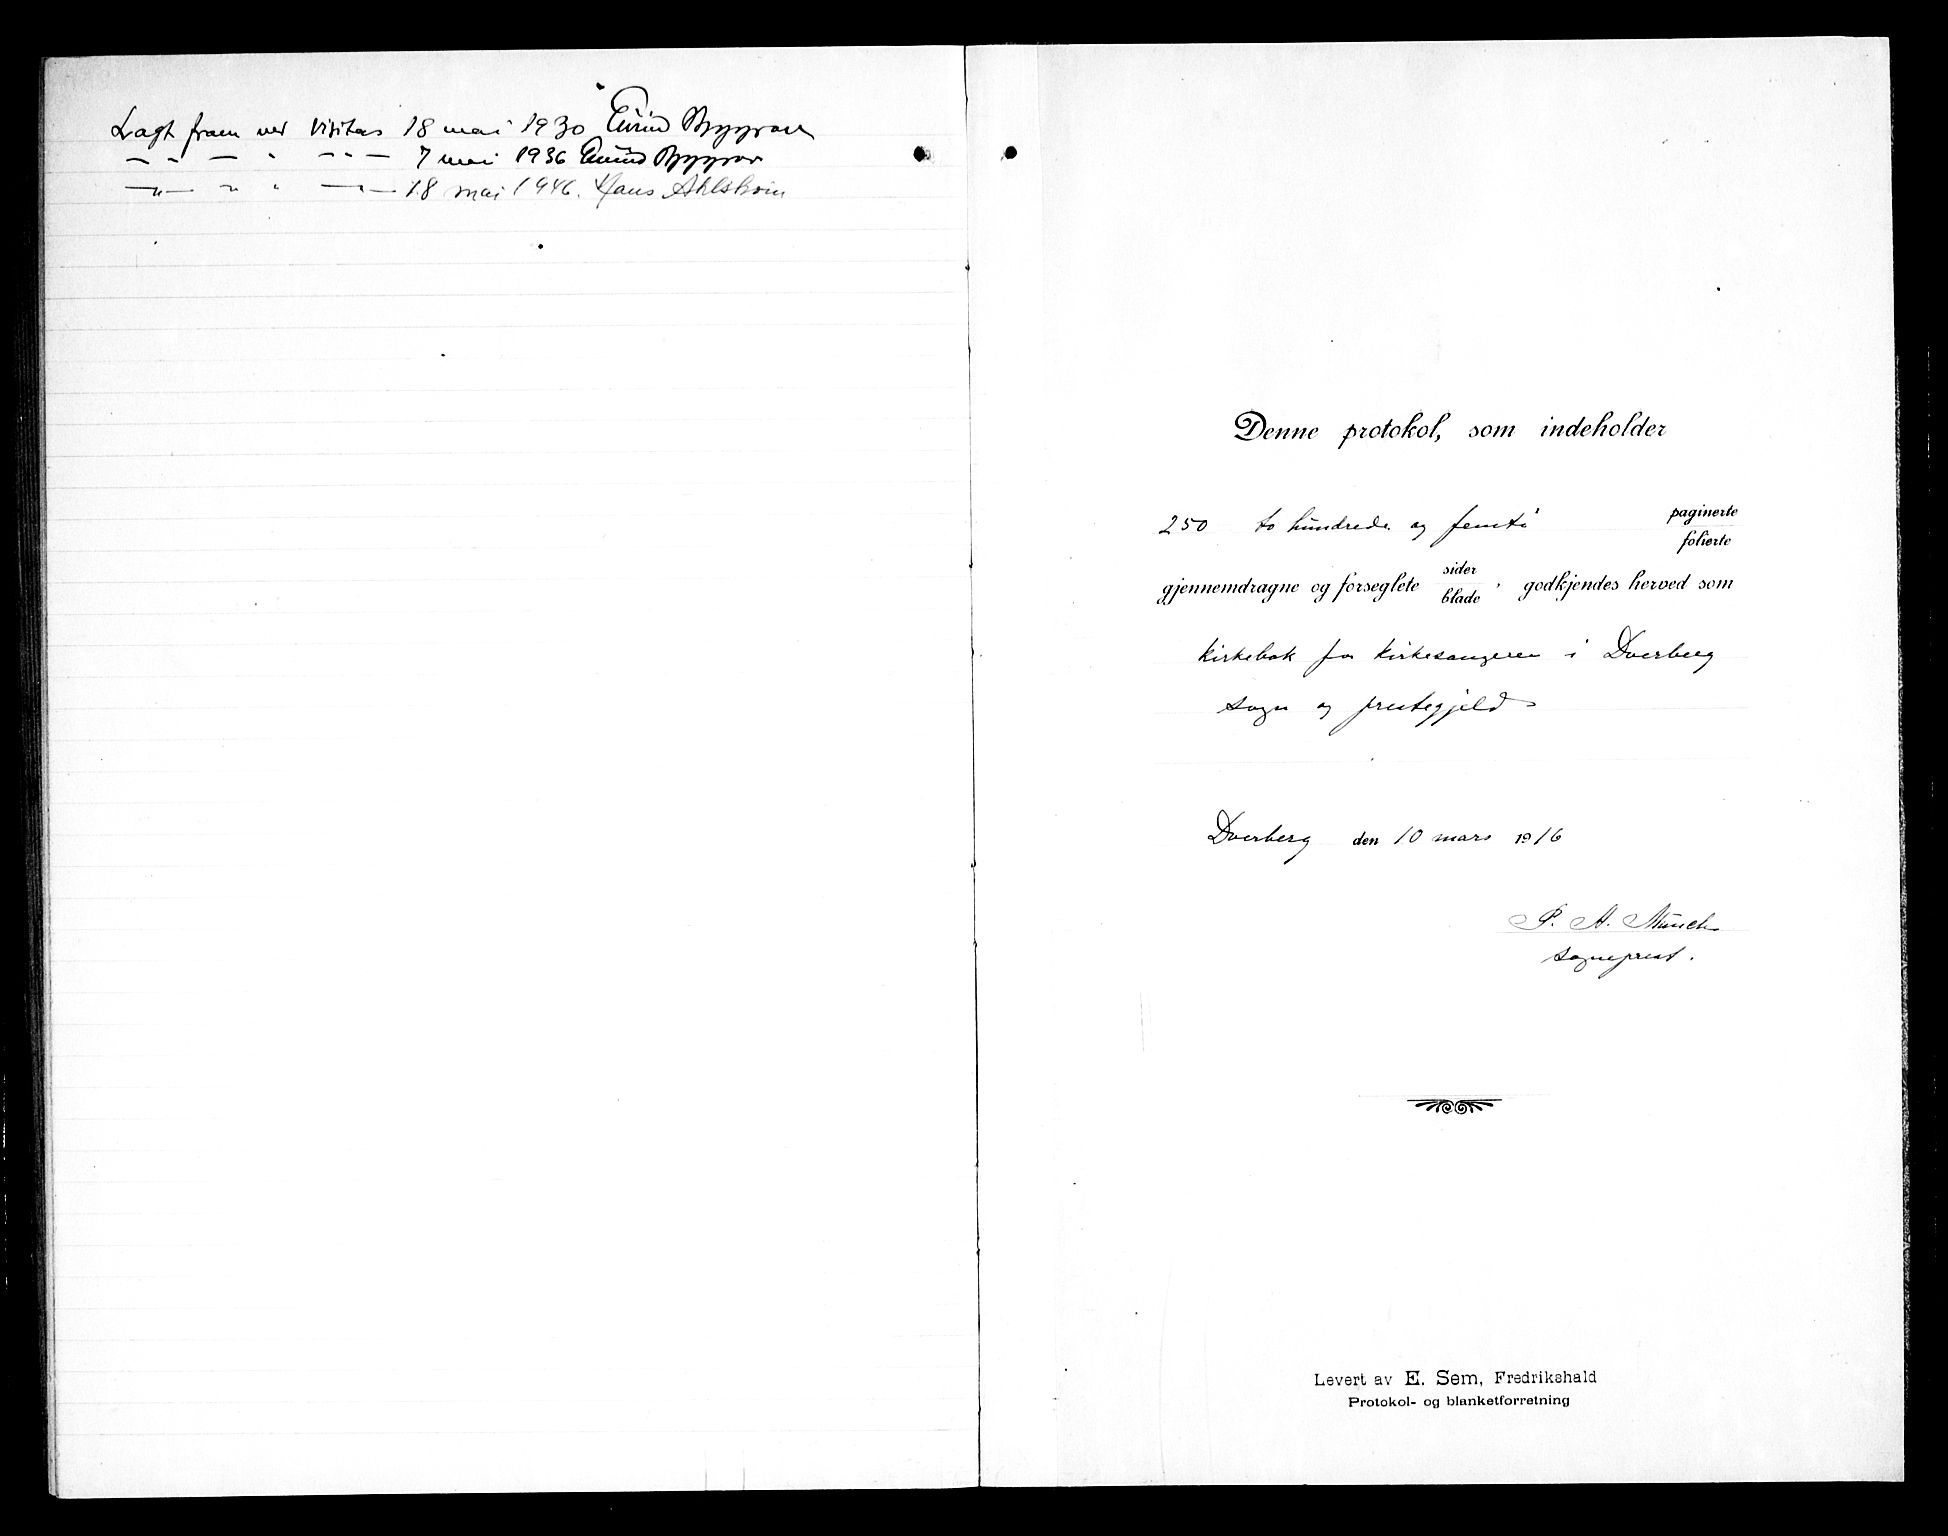 Lagt fram ved visitas 18 mai 1930 Eivind Berggrav
— " — " — " — 7 mai 1936 Eivind Berggrav
— " — " " — " — 18 mai 1946. Hans Ahlskoin
Denne protokol, som indeholder
250 to hundrede og femti paginerte
folierte
gjennemdragne og forseglete sider
blade, godkjendes herved som
kirkebok for kirkesangeren i Dverberg
sogn og prestegjeld
Dverberg den 10 mars 1916
P. A. Münch
sogneprest.
Levert av E. Sem, Fredrikshald
Protokol- og blanketforretning